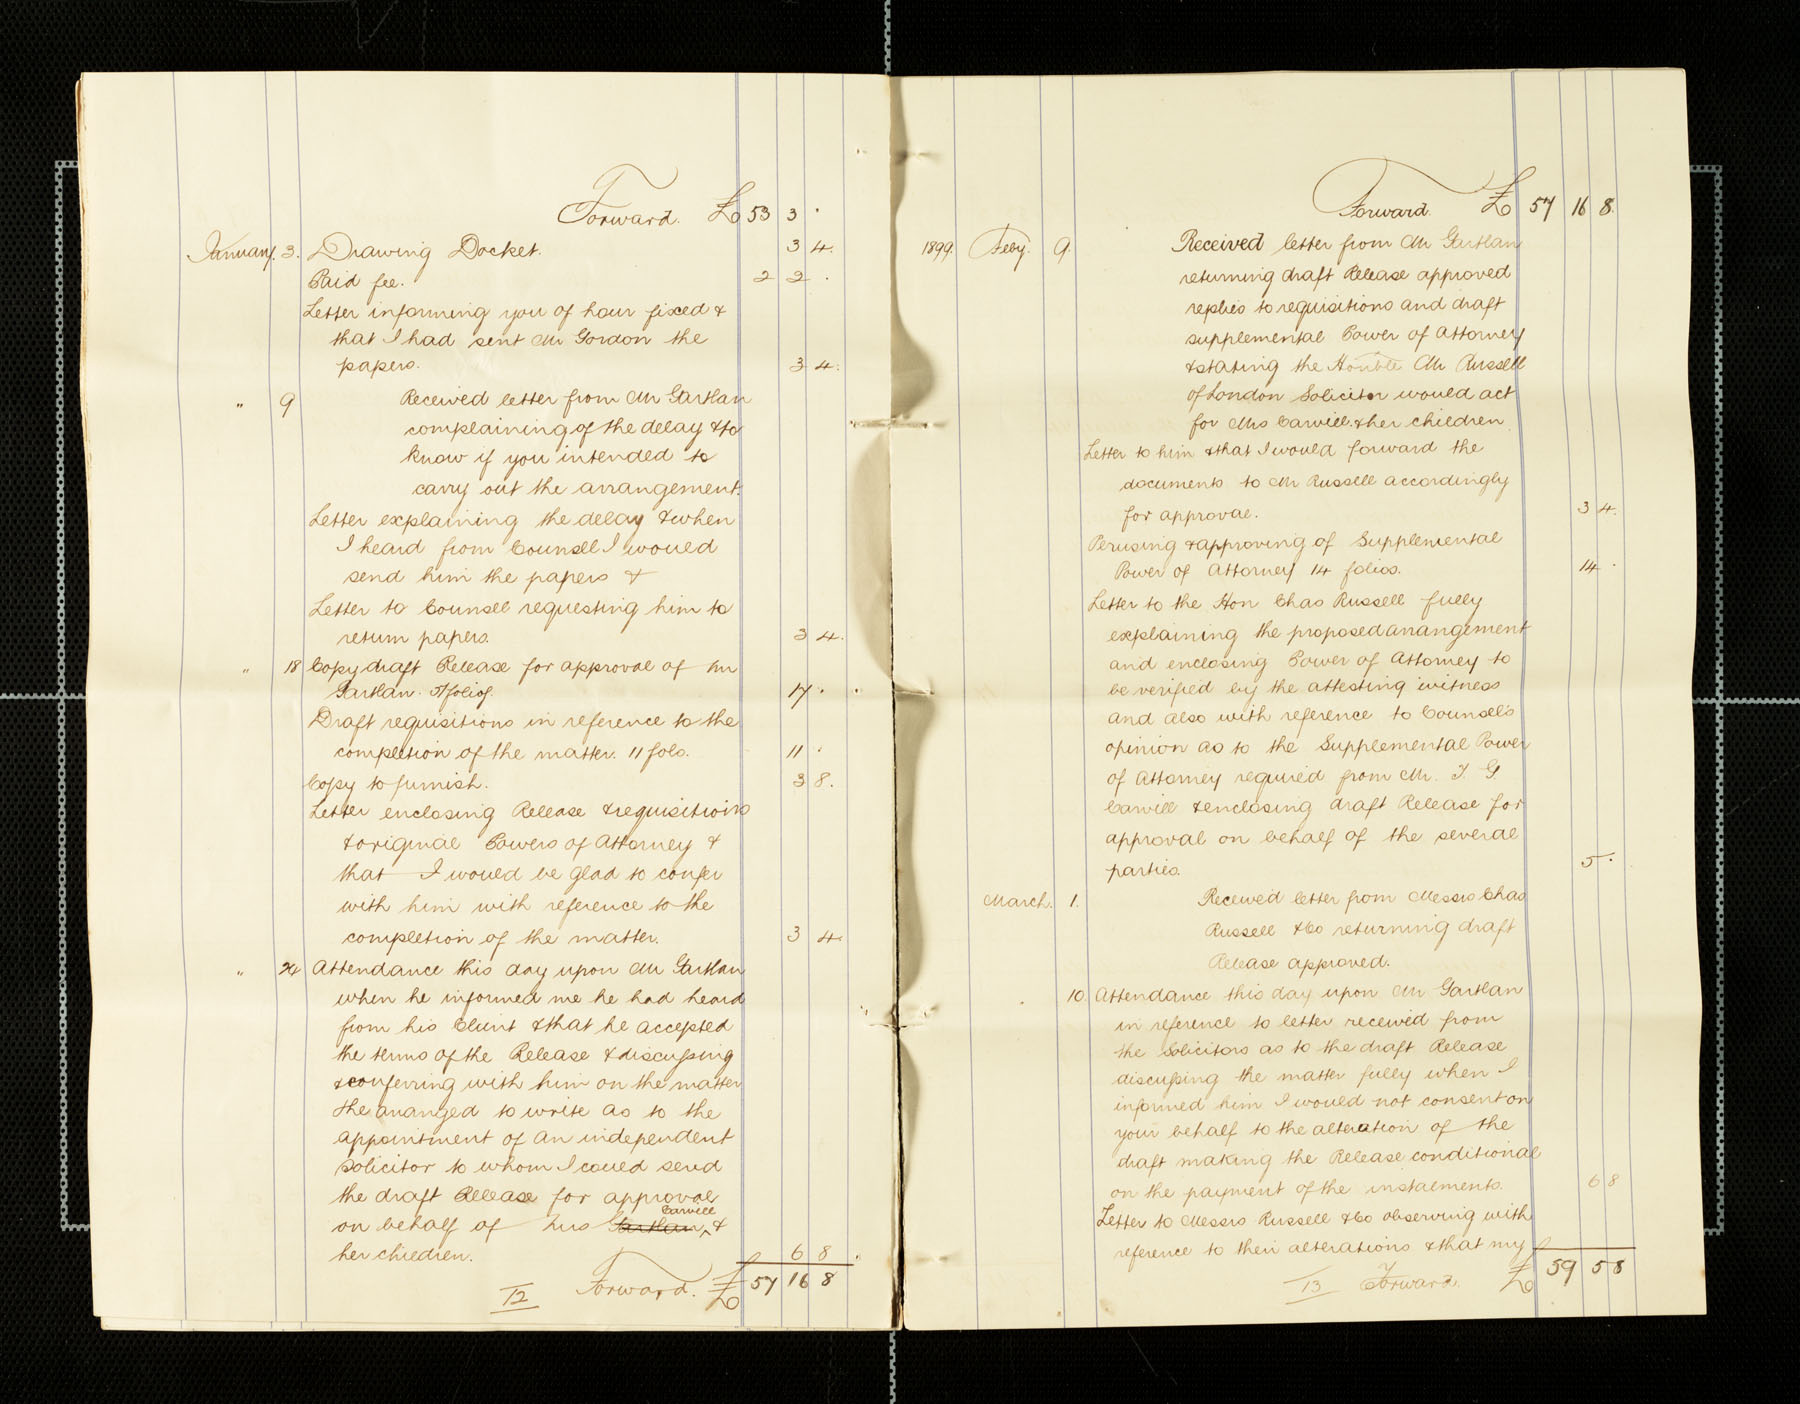 Forward. £ 53 3 .
January. 3. Drawing Docket. 3 4.
Paid fee. 2 2 .
Letter informing you of hour fixed &
that I had sent Mr Gordon the
papers. 3 4.
" 9 Received letter from Mr Gartlan
complaining of the delay & to
know if you intended to
carry out the arrangement.
Letter explaining the delay & when
I heard from Counsel I would
send him the papers &
Letter to Counsel requesting him to
return papers. 3 4.
" 18 Copy draft Release for approval of Mr
Gartlan. folios. 17 .
Draft requisitions in reference to the
completion of the matter. 11 fols. 11 .
Copy to furnish. 3 8.
Letter enclosing Release & requisitions
& original Powers of Attorney &
that I would be glad to confer
with him with reference to the
completion of the matter. 3 4.
" 24 Attendance this day upon Mr Gartlan
when he informed me he had heard
from his Client & that he accepted
the terms of the Release & discussing
& conferring with him on the matter
& he arranged to write as to the
appointment of an independent
Solicitor to whom I could send
the draft Release for approval
on behalf of Mrs Gartlan Carvill &
her children. 6 8.
12 Forward. £ 57 16 8
Forward. £ 57 16 8.
1899. Feby. 9. Received letter from Mr Gartlan
returning draft Release approved
replies to requisitions and draft
supplemental Power of Attorney
& stating the Honble Mr Russell
of London Solicitor would act
for Mrs Carvill & her children.
Letter to him & that I would forward the
documents to Mr Russell accordingly
for approval. 3 4.
Perusing & approving of Supplemental
Power of Attorney 14 folios. 14 .
Letter to the Hon Chas Russell fully
explaining the proposed arrangement
and enclosing Power of Attorney to
be verified by the attesting witness
and also with reference to Counsel's
opinion as to the Supplemental Power
of Attorney required from Mr. F. G.
Carvill & enclosing draft Release for
approval on behalf of the several
parties. 5 .
March. 1. Received letter from Messrs Chas
Russell & Co returning draft
Release approved.
10. Attendance this day upon Mr Gartlan
in reference to letter received from
the Solicitors as to the draft Release
discussing the matter fully when I
informed him I would not consent on
your behalf to the alteration of the
draft making the Release conditional
on the payment of the instalments. 6 8
Letter to Messrs Russell & Co observing with
reference to their alterations & that my
13 Forward. £ 59 5 8